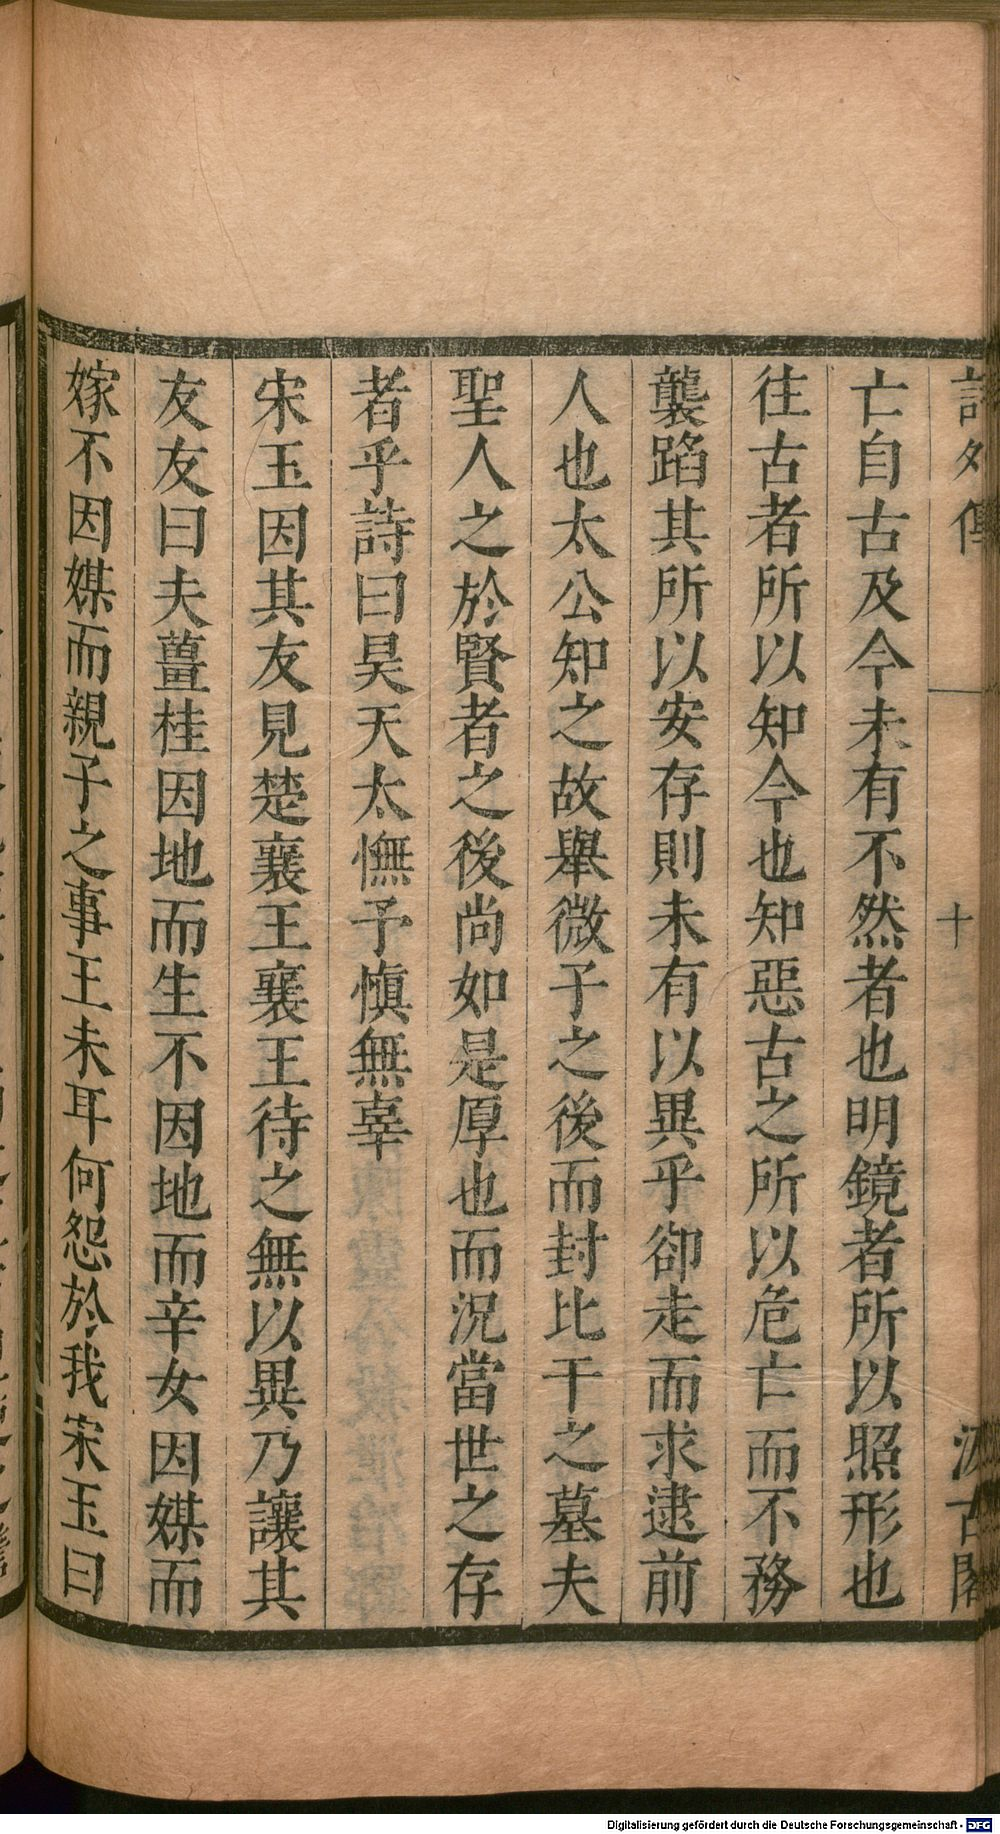 詩外傳 十 汲古閣
亡自古及今未有不然者也明鏡者所以照形也
往古者所以知今也知惡古之所以危亡而不務
襲蹈其所以安存則未有以異乎卻走而求逮前
人也太公知之故舉微子之後而封比干之墓夫
聖人之於賢者之後尚如是厚也而況當世之存
者乎詩曰昊天太憮予愼無辜
宋玉因其友見楚襄王襄王待之無以異乃讓其
友友曰夫薑桂因地而生不因地而辛女因媒而
嫁不因媒而親子之事王未耳何怨於我宋玉曰
Digitalisierung gefördert durch die Deutsche Forschungsgemeinschaft - DFG